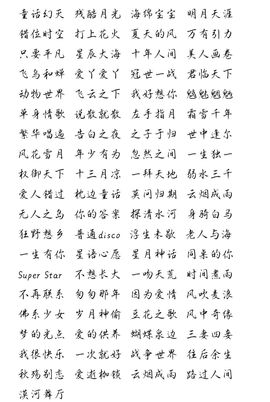 童话幻灭 残酷月光 海绵宝宝 明月天涯
错位时空 打上花火 夏天的风 万有引力
只要平凡 星辰大海 十年人间 美人画卷
飞鸟和蝉 爱丫爱丫 冠世一战 君临天下
动物世界 飞云之下 我好想你 魑魅魍魉
单身情歌 说散就散 左手指月 霜雪千年
繁华唱遍 告白之夜 之子于归 世中逢尔
风花雪月 年少有为 忽然之间 一生独一
权御天下 十三月凉 一拜天地 弱水三千
爱人错过 枕边童话 莫问归期 云烟成雨
无人之岛 你的答案 探清水河 身骑白马
狂野想乡 普通disco 浮生未歇 老人与海
一生有你 星语心愿 星月神话 同桌的你
Super Star 不想长大 一吻天荒 时间煮雨
不再联系 匆匆那年 因为爱情 风吹麦浪
佛系少女 岁月神偷 豆花之歌 风中奇缘
梦的光点 爱的供养 蝴蝶泉边 三妻四妾
我很快乐 一次就好 战争世界 往后余生
秋殇别恋 爱逝枷锁 云烟成雨 路过人间
漠河舞厅